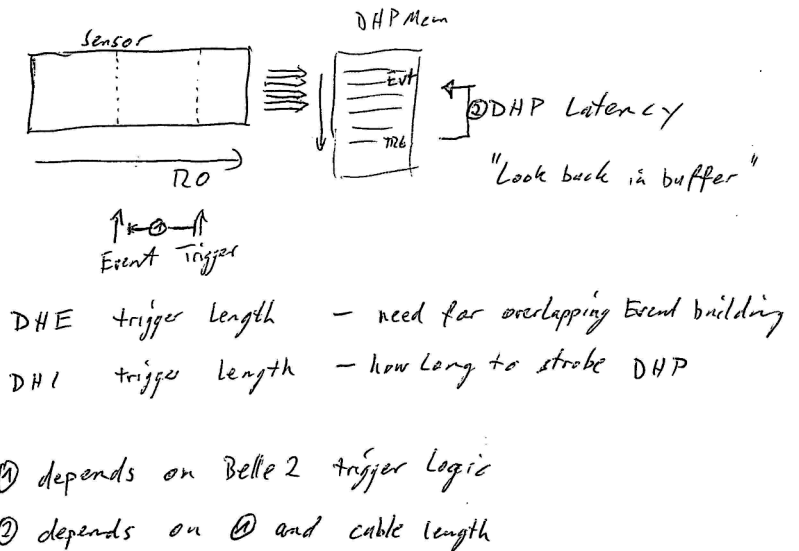 DHP Mem
Sensor
Evt
② DHP Latency
TRG
"Look back in buffer"
RO
①
Event Trigger
DHE trigger length – need for overlapping Event building
DHI trigger length – how long to strobe DHP
① depends on Belle 2 trigger Logic
② depends on ① and cable length